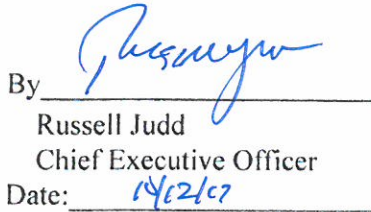 By
Russell Judd
Chief Executive Officer
Date: 10/12/17